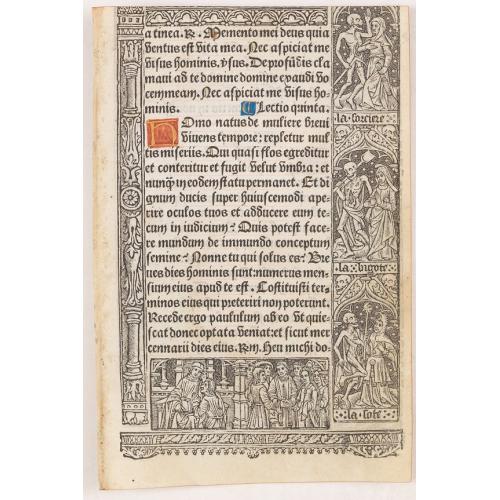 a tinea. R. Memento mei deus quia
ventus est vita mea. Nec aspiciat me
visus hominis. ỹsus. De profūdis cla
maui ad te domine domine exaudi vo
cem meam. Nec aspiciat me visus ho-
minis. Lectio quinta.
Homo natus de muliere breui
viuens tempore: repletur mul
tis miseriis. Qui quasi flos egreditur
et conteritur et fugit velut vmbra: et
nunq̃ in eodem statu permanet. Et di
gnum ducis super huiuscemodi ape-
rire oculos tuos et adducere eum te-
cum in iudicium? Quis potest face-
re mundum de immundo conceptum
semine? Nonne tu qui solus es? Bre
ues dies hominis sunt: numerus men-
sium eius apud te est. Cōstituisti ter-
minos eius qui preteriri non poterunt.
Recede ergo paululum ab eo vt quie-
scat donec optata veniat: et sicut mer
cennarii dies eius. Rm. Heu michi do-
la sorciere
la bigote
la sote